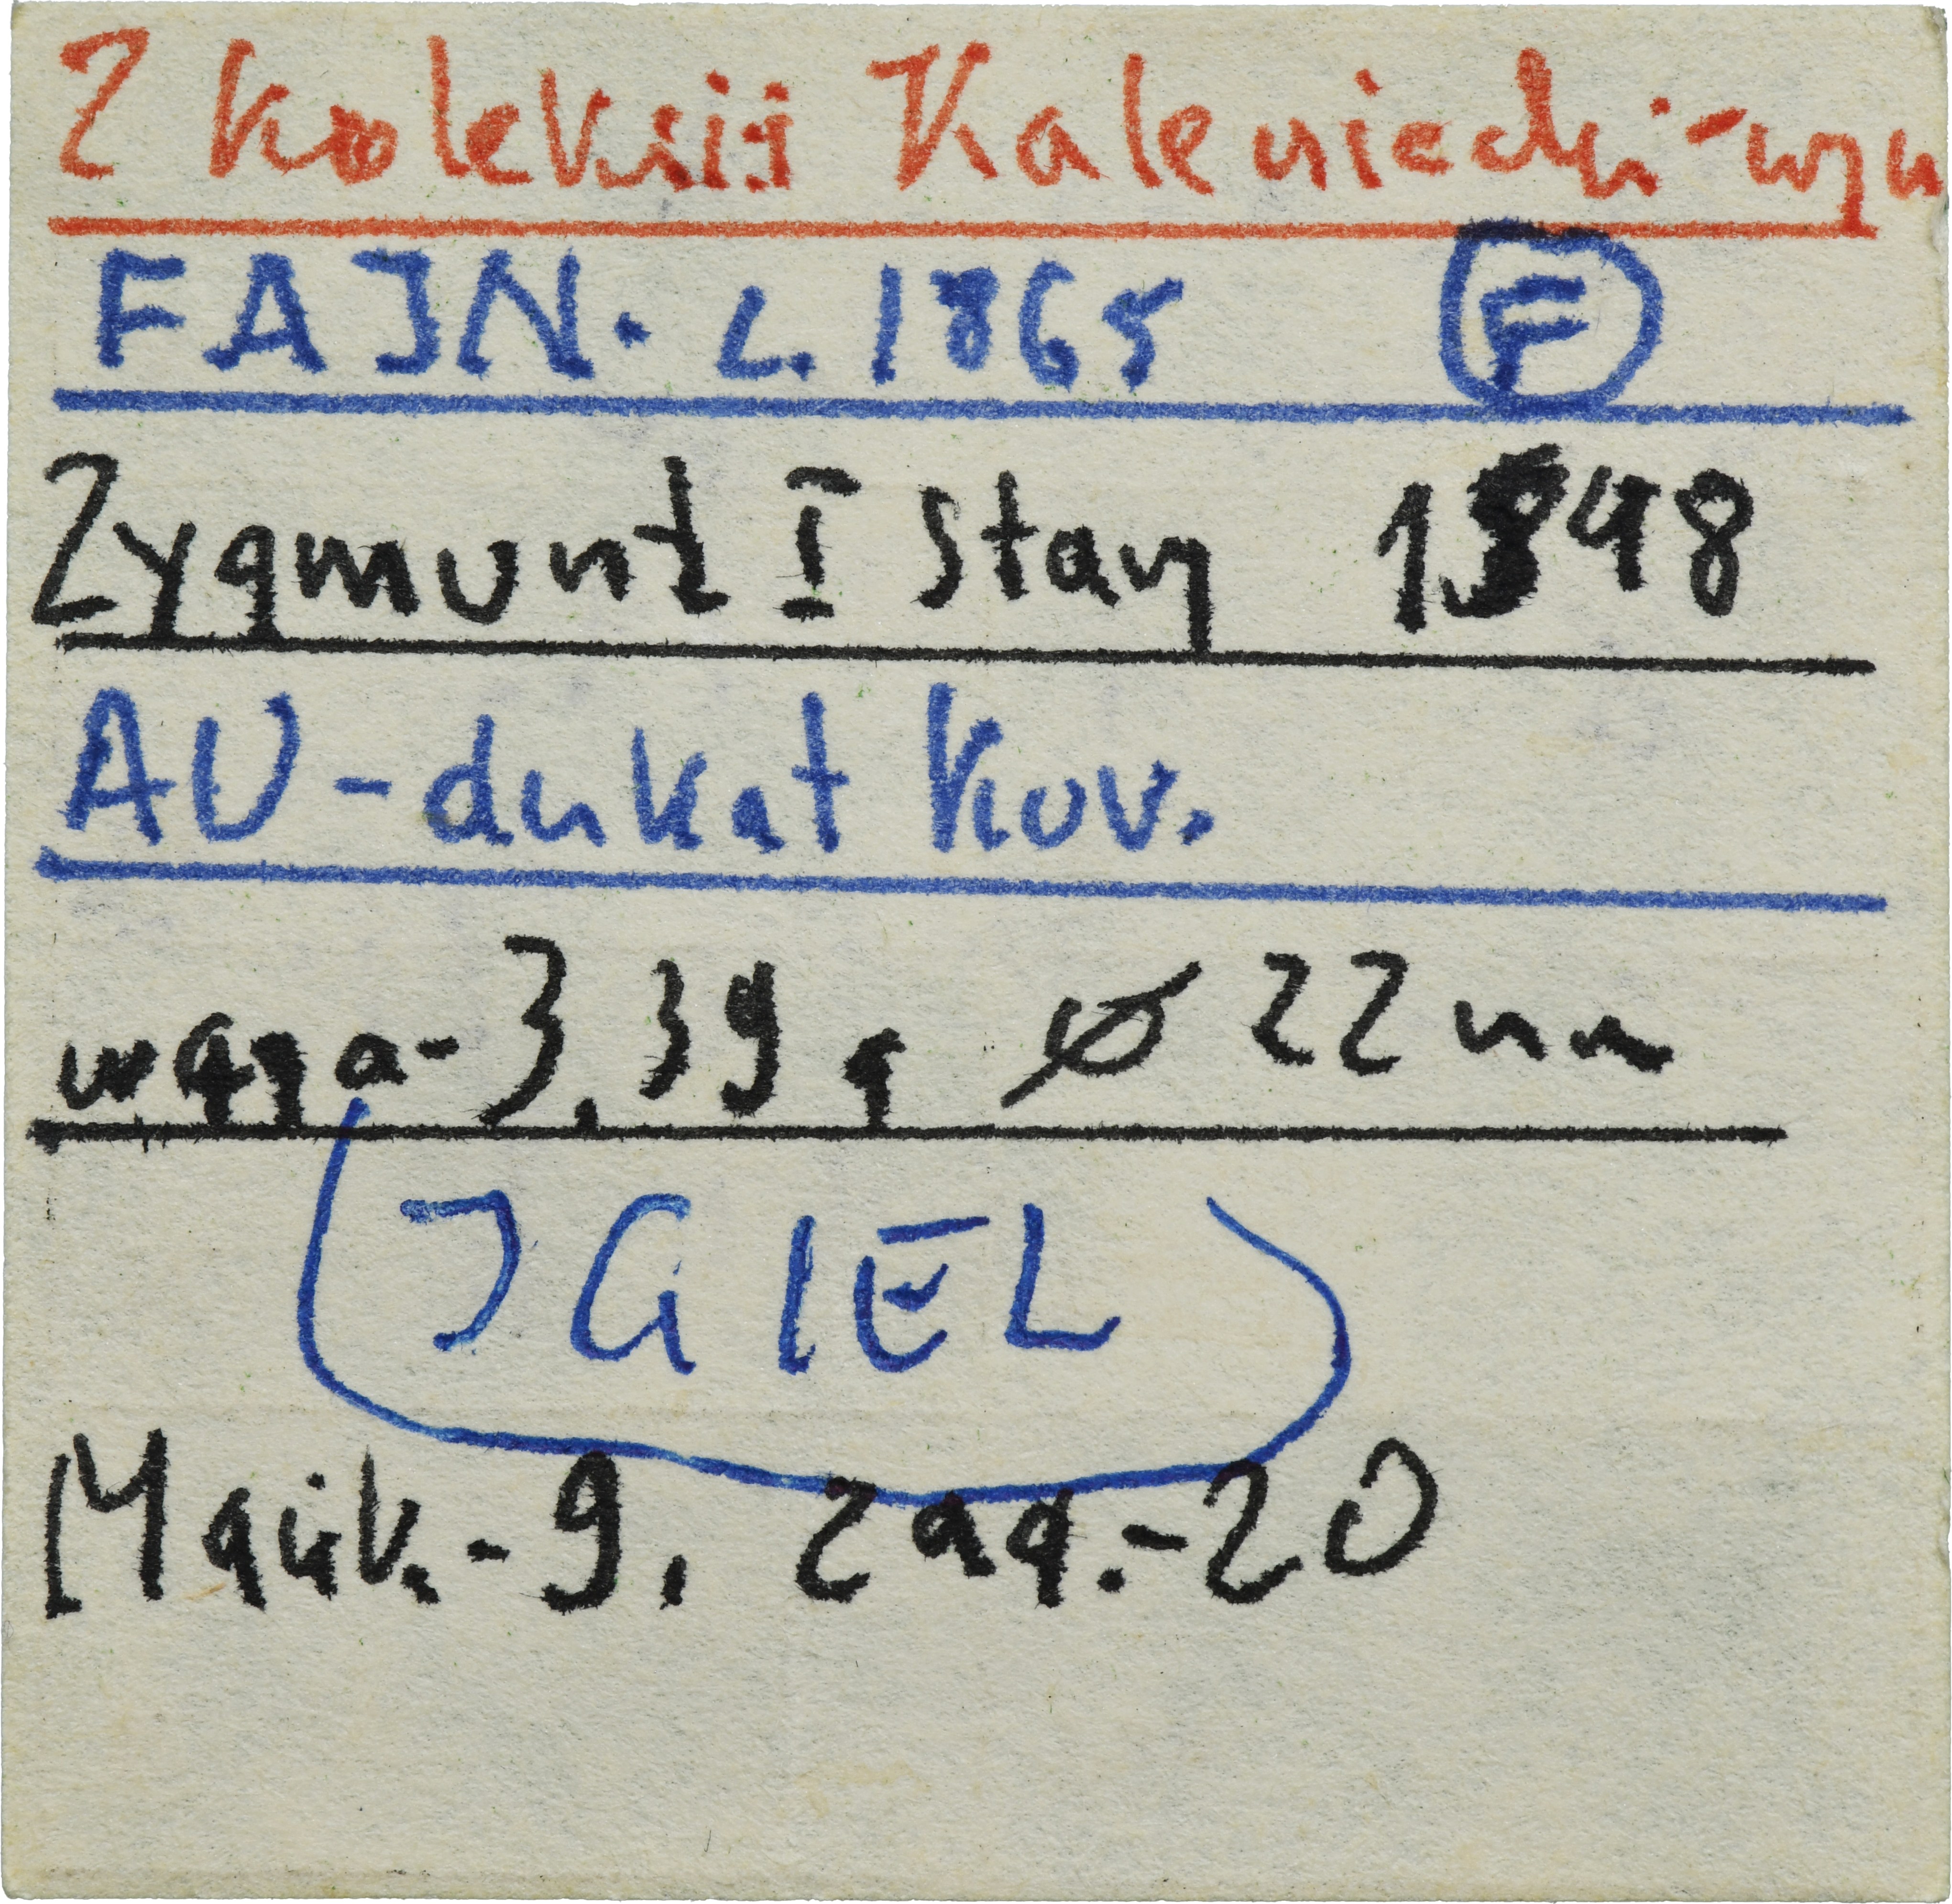 Z Koleksii Kaleniecki-wzu
FAJN. c. 1865 F
Zygmunt I Stary 1548
AU-dukat Kor.
waga-3.39g ø 22mm
IGIEL
Majik.-9. Zag.-20